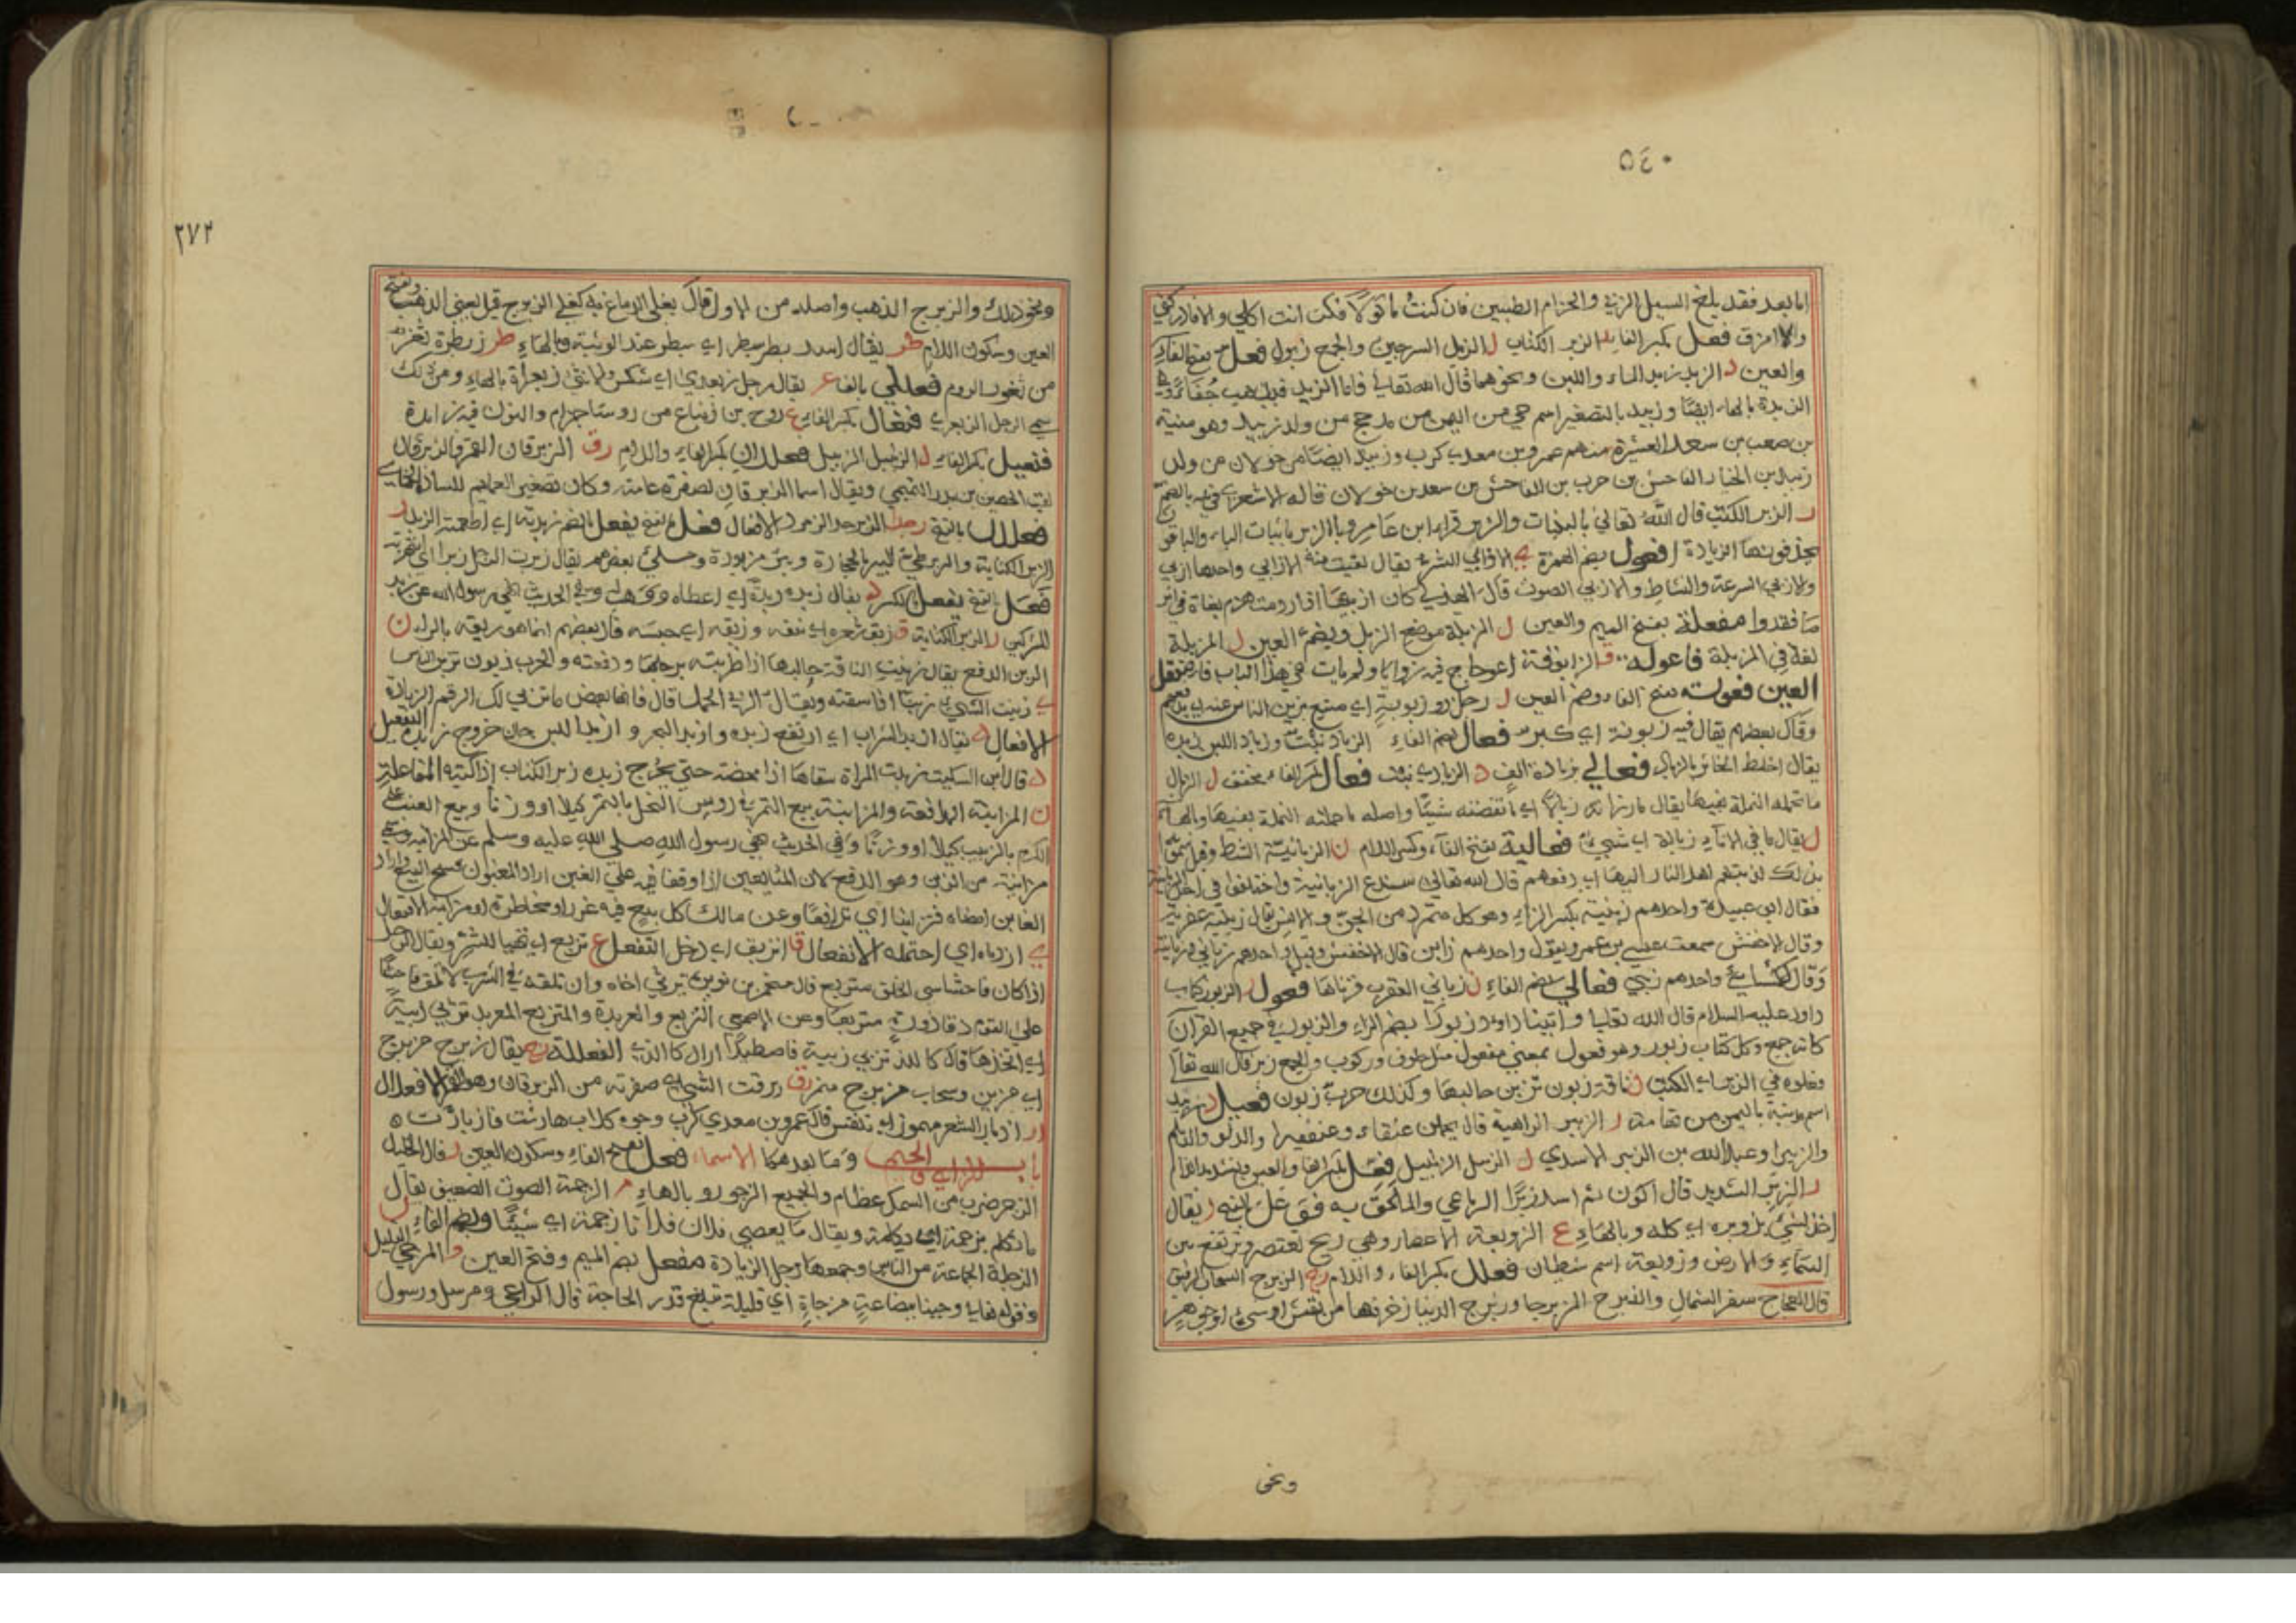 ٥٤٠
اما بعد فقد بلغ السيل الزبى والحزام الطبيين فان كنتُ ماكولاً فكن انت اكلي والا فادركني
ولما امزق فعل بكسر الفاء الزبر الكتاب ل الزبل السرجين والجمع زبول فعل بفتح الفاء
والعين د الزبد زبد الماء واللبن ونحوهما قال الله تعالى فاما الزبد فيذهب جُفَاءً
الزبدة بالهاء ايضًا وزبيد بالتصغير اسم حي من اليمن من مذحج من ولد زبيد وهو منبه
بن صعب بن سعد العشيرة منهم عمرو بن معدي كرب وزبيد ايضًا من خولان من ولد
زبيد بن الخيار الفاحش بن حرب بن الفاحش بن سعد بن خولان قاله الاشعري بالضم
ر الزبر الكتب قال اللّٰه تعالى بالبينات والزبر قراء ابن عامر وبالزبر باثبات الباء والباقون
يحذفونها الزيادة افعول بضم الهمزة ي الازابي الشر يقال لقيت منه الازابي واحدها ازبي
والازبي السرعة والنشاط والازبي الصوت قال الهذلي كان ازبيها اذا رومت هزم بغاة في اثر
ما فقدوا مفعلة بفتح الميم والعين ل المزبلة موضع الزبل وبضم العين ل المزبلة
لغة في المزبلة فاعولة ق الزابوقة اعوجاج فيه زوايا ولم يات في هذا الباب فا مثقل
العين فعولة بفتح الفاء وضم العين ن رجل ذو زبونة اي منيع يزبن الناس عنه اي يدفعهم
وقال بعضهم يقال فيه زبونة اي كبر فعال بضم الفاء الزباد نبت وزباد اللبن زبده
يقال اختلط الخاثر بالزباد فعالي بزيادة الف د الزبادي نبت فعال بكسر الفاء مخفف ل الزبال
ما تحمله النملة بفيها يقال ما رزاته زبالاً اي ما نقصته شيئًا واصله ما حملته النملة بفيها وبالهاء
ل يقال ما في الاناء زبالة اي شيء فعالية بفتح الفاء وكسر اللام ن الزبانية الشرط وقيل سموا
بذلك لزبنهم اهل النار اليها اي دفعهم قال الله تعالى سندع الزبانية واختلفوا في
فقال ابو عبيدة واحدهم زبنية بكسر الزاء وهو كل متمرد من الجن والانس يقال زبنية عفرية
وقال الاخفش سمعت عيسى بن عمر ويقول واحدهم زابن قال الاخفش وقيل واحدهم زباني
وقال الكسائي واحدهم زبني فعالى بضم الفاء ن زبانى العقرب قرناها فعول ر الزبور كتاب
داود عليه السلام قال الله تعالى وآتينا داود زبورًا بضم الزاء والزبور في جميع القرآن
كانه جمع وكل كتاب زبور وهو فعول بمعنى مفعول مثل حلوب وركوب والجمع زبر قال الله تعالى
وفعلوه في الزبر اي الكتب ن ناقة زبون تزبن حالبها وكذلك حرب زبون فعيل د زبيد
اسم مدينة باليمن من تهامة ر الزبير الداهية قال يحملن عنقاء وعنقفيرا والدلو والديلم
والزبيرا وعبد الله بن الزبير الاسدي ل الزبيل الزنبيل فعل بكسر الفاء والعين وتشديد اللام
ر الزبر الشديد قال اكون ثم اسد زبرًا الرباعي والملحق به فوعل بالفتح ر يقال
اخذ الشيء بزوبره اي كله وبالهاء ع الزوبعة الاعصار وهي ريح تعتصر وترتفع بين
السماء والارض وزوبعة اسم شيطان فعلل بكسر الفاء واللام رج الزبرج السحاب الرقيق
قال العجاج سفر الشمال والقبرج المزبرجا وزبرج الدنيا زخرفها من نقش او شيء او جوهر
ونحو
٢٧٢
ونحو ذلك والزبرج الذهب واصله من الاول قال يغلي الدماغ به كغلي الزبرج قيل يعني الذهب وبفتح
العين وسكون اللام طر يقال اسد سبطر اي يسطو عند الوثبة وبالهاء طر زبطرة ثغر
من ثغور الروم فعللي بالفتح عر يقال رجل زبعري اي شكس والانثى زبعراة بالهاء ومن ذلك
سمي الرجل الزبعرى فنعال بكسر الفاء ع روح بن زنباع من روساء جذام والنون فيه زايدة
فنعيل بكسر الفاء ل الزنبيل الزبيل فعللان بكسر الفاء واللام رق الزبرقان القمر والزبرقان
لقب الحصين بن بدر التميمي ويقال انما الزبرقان لصفرة عمامته وكان تصفير العمائم للسادة
فعللل بالفتح رجد الزبرجد الزمرد الافعال فعل بالفتح يفعل بالضم د زبده اي اطعمه الزبد ر
الزبر الكتابة والزبر طي البير بالحجارة وبئر مزبورة وحكى بعضهم يقال زبرت الرجل زبرا اي انتهرته
فعل بالفتح يفعل بالكسر د يقال زبده زبداً اي اعطاه ووهب له وفي الحديث نهى رسول الله عن زبد
المشركين ر الزبر الكتابة ق زبق شعره اي نتفه وزبقه اي حبسه قال بعضهم انما هو ربقه بالراء ن
الزبن الدفع يقال زبنت الناقة حالبها اذا ضربته برجلها ودفعته والحرب زبون تزبن الناس
ي زبيت الشيء زبيًا اذا سقته ويقال الزبي الحمل قال فانها بعض ما تزبي لك الرقم الزيادة
الافعال د يقال ازبد الشراب اي ارتفع زبده وازبد البحر وازبد اللبن حان خروج زبده التفعيل
د قال ابن السكيت زبدت المراة سقاها اذا مخضته حتى يخرج زبده زبر الكتاب اذا كتبه المفاعلة
ن المزابنة المدافعة والمزابنة بيع التمر في روس النخل بالتمر كيلا او وزنا وبيع العنب على
الكرم بالزبيب كيلا او وزنًا وفي الحديث نهى رسول الله صلى الله عليه وسلم عن المزابنة وسمي
مزابنة من الزبن وهو الدفع لان المتبايعين اذا وقفا فيه على الغبن اراد المغبون فسخ البيع واراد
الغابن امضاه فتزابنا اي تدافعًا وعن مالك كل بيع فيه غرر او مخاطرة او مزابنة الافتعال
ي ازدباه اي احتمله الانفعال ق انزبق اي دخل التفعل ع تزبع اي تهيا للشر ويقال الرجل
اذا كان فاحشا سيئ الخلق متزبع قال متمم بن نويرة يرثي اخاه وان تلقه في الشرب لا تلق فاحشًا
على القوم ذا قاذورة متزبعا وعن الاصمعي التزبع والعربدة والمتزبع المعربد تزبى زبية
اي اتخذها قال كاللذ تزبى زبية فاصطيدا اراد كالذي الفعللة رج يقال زبرج مزبرج
اي مزين وسحاب مزبرج منه رق زبرقت الشيء اي صفرته من الزبرقان وهو القمر الافعلال
ر ازبار الشعر مهموز اي تنفش قال عمرو بن معدي كرب وجوه كلاب هارشت فازبارت ه
باب الزاي والجيم وما بعدهما الاسماء فعل بفتح الفاء وسكون العين ر قال الخليل
الزجر ضرب من السمك عظام والجميع الزجور وبالهاء م الزجمة الصوت الضعيف يقال
ما تكلم بزجمة اي كلمة ويقال ما يعصي فلان فلانا زجمة اي شيئًا وبضم الفاء ل
الزجلة الجماعة من الناس وجمعها زجل الزيادة مفعل بضم الميم وفتح العين و المزجى القليل
وقوله تعالى وجينا ببضاعةٍ مزجاةٍ اي قليلة تبلغ قدر الحاجة قال الراعي ومرسل ورسول